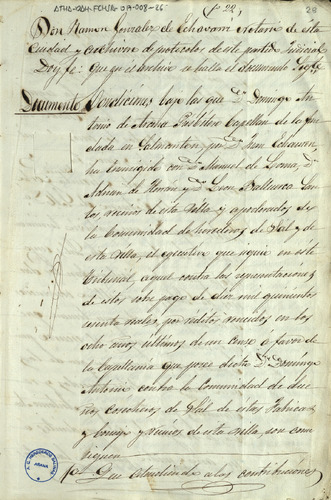 ATHA-DAH-FCHSA-017-008-26
(P. 22)
28
Don Ramon Gonzalez de Echavarri notario de esta
Ciudad y archivero de protocolos de este partido judicial
Doy fe: Que en el archivo se halla el documento sigte
Documento Condiciones bajo las que Dn Domingo An-
tonio de Presbitero Capellan de la fun-
dada en por Dn Juan Echavarria
ha transigido con Dn Manuel de
Adrian de y Dn Leon Ballerca San-
tos vecinos de esta Villa y apoderados de
la Comunidad de herederos de Sal y de
esta Villa, el ejecutivo que seguia en este
Tribunal, aquel contra las representaciones
de estos sobre pago de diez mil quinientos
cuenta reales, por reditos vencidos en los
ocho años ultimos de un censo á favor de
la Capellania que posee dicho Dn Domingo
Antonio contra la Comunidad de due-
ños cosecheros de Sal de estas Fabricas
y Consejo y vecinos de esta villa, son como
siguen
1a Que atendiendo a las contribuciones